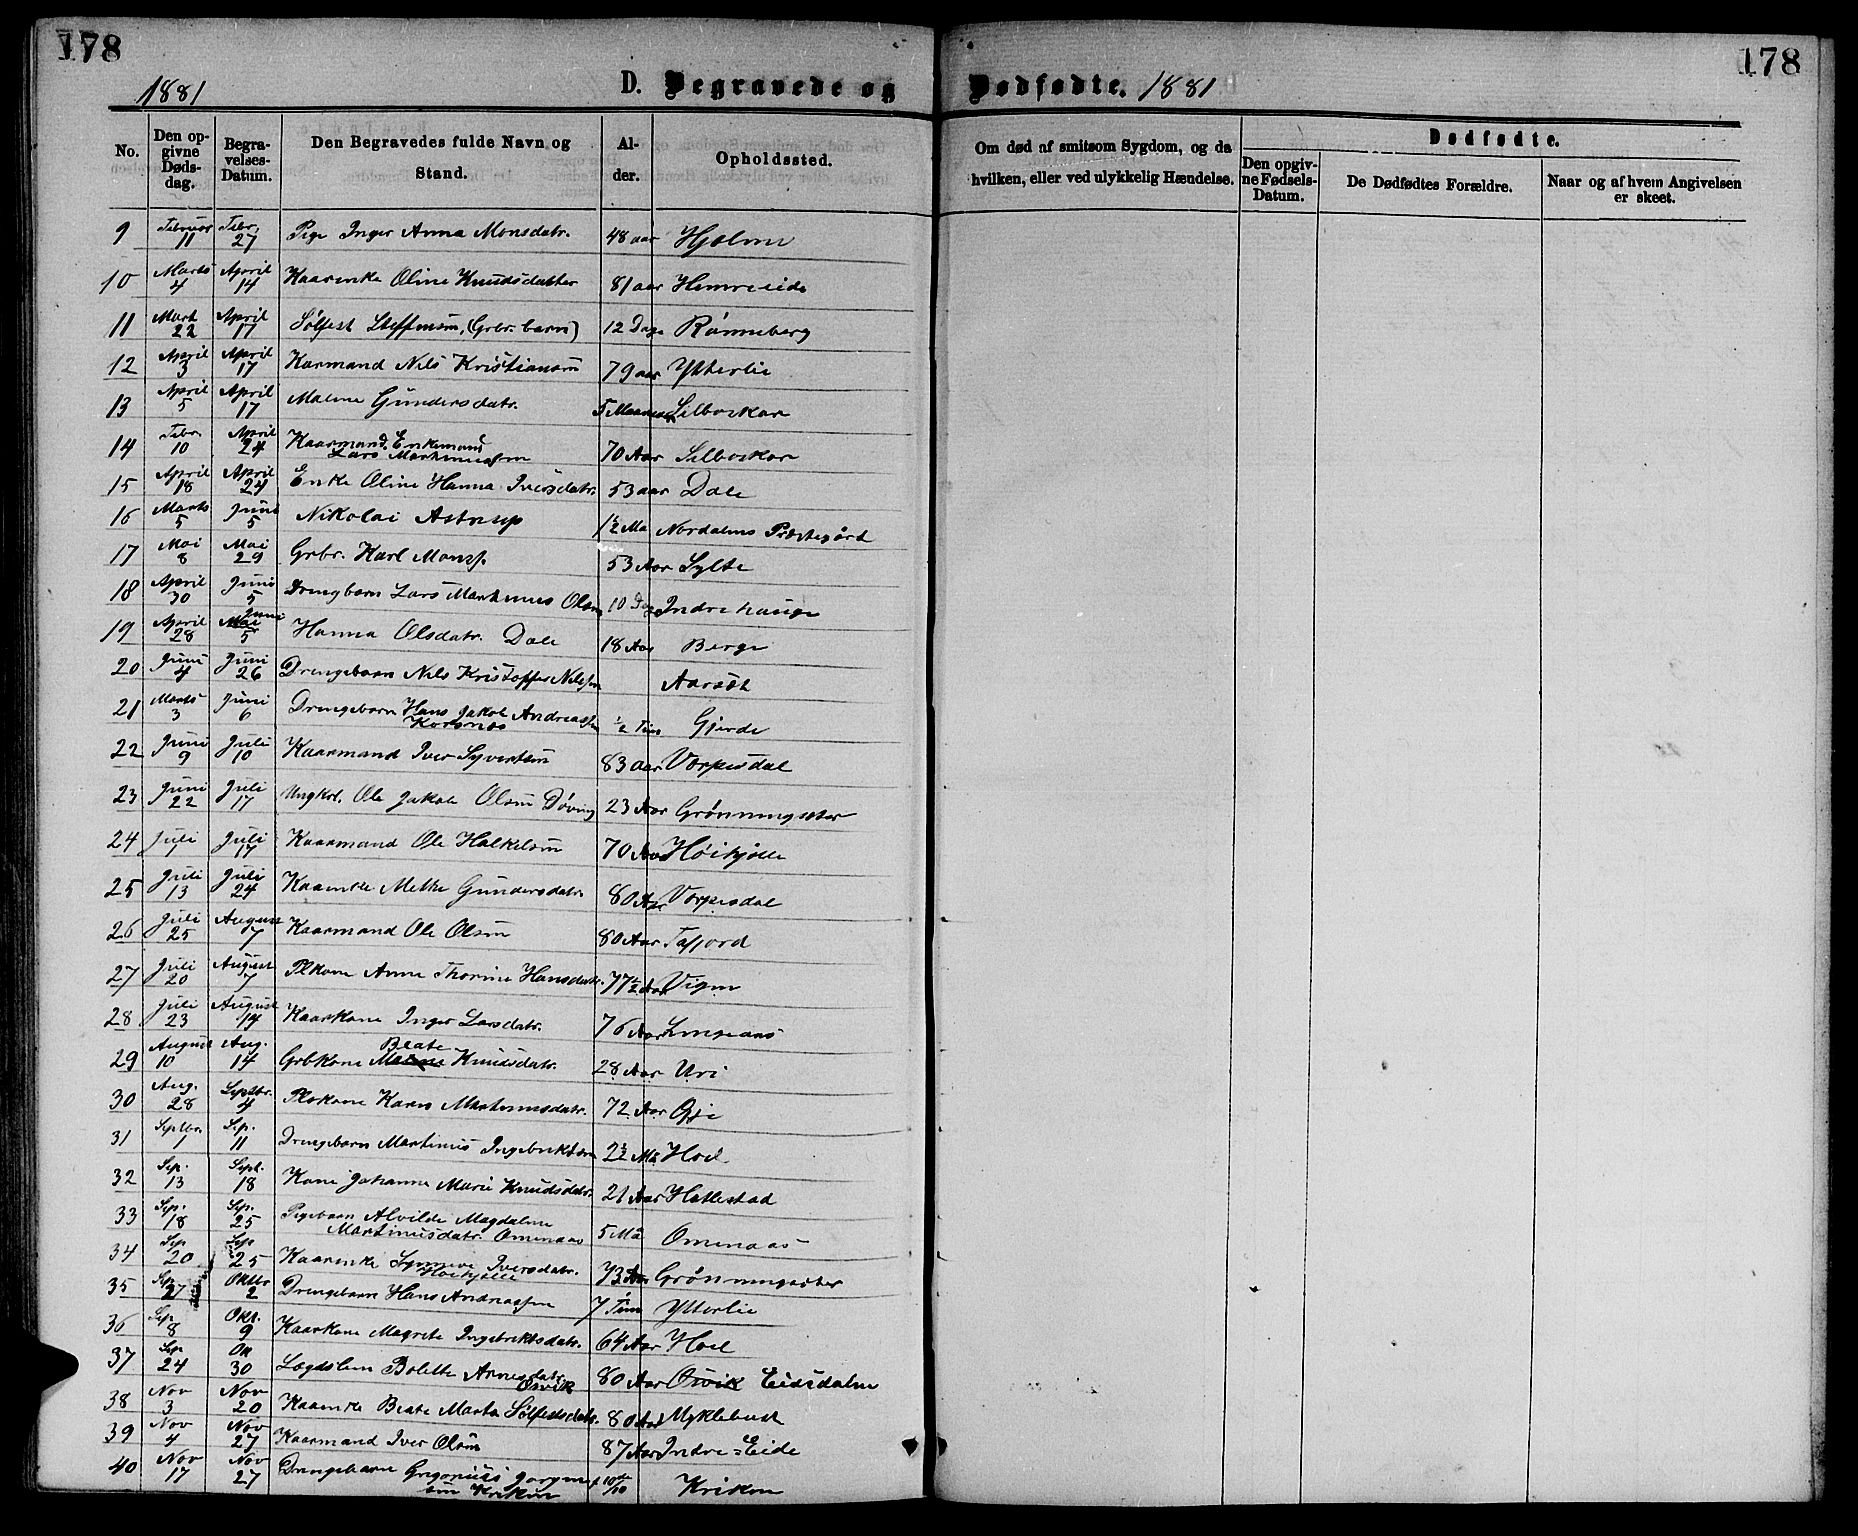 178
178
1881
D. Begravede og Dødfødte. 1881
No.
Den opgivne Dødsdag.
Begravelses-Datum.
Den Begravedes fulde Navn og Stand.
Alder.
Opholdssted.
Om død af smitsom Sygdom, og da hvilken, eller ved ulykkelig Hændelse.
Dødfødte.
Den opgivne Fødsels-Datum.
De Dødfødtes Forældre.
Naar og af hvem Angivelsen er skeet.
9 Februar 11 Febr. 27 Pige Inger Anna Monsdatr. 48 aar Hjelm
10 Marts 4 April 14 Kaarenke Oline Knudsdatter 81 aar Hemreeide
11 Mart 22 April 17 Sølfest Steffensen, (Grbr. barn) 12 Dage Rønneberg
12 April 3 April 17 Karmand Nils Kristiansen 79 aar Ytterlie
13 April 5 April 17 Malene Gundersdatr. 5 Maaneder Selboskar
14 Febr. 10 April 24 Kaarmand. Enkemand Lars Marthinussen 70 Aar Selboskar
15 April 18 April 24 Enke Oline Hanna Iversdatr. 53 aar Dale
16 Marts 5 Juni 5 Nikolai Astrup 1½ Ma Nordalens Præstegård
17 Mai 8 Mai 29 Grbr. Karl Monss. 53 Aar Sylte
18 April 30 Juni 5 Drengbarn Lars Marthinus Olsen 10 Dag Indrehauge
19 April 28 Juni 5 Hanna Olsdatr. Dale 18 Aar Berge
20 Juni 4 Juni 26 Drengebarn Nils Kristoffer Nilssen Aarsæt
21 Marts 3 Juni 6 Drengebarn Hans Jakob Andreassen Korsnes ½ Tim Gjerde
22 Juni 9 Juli 10 Kaarmand Iver Syvertsen 83 aar Verpesdal
23 Juni 22 Juli 17 Ungkrl. Ole Jakob Olsen Døving 23 Aar Grønningsæter
24 Juli 1 Juli 17 Kaarmand Ole Halkelsen 70 Aar Høikjølle
25 Juli 13 Juli 24 Kaarenke Mette Gundersdatr. 80 Aar Verpesdal
26 Juli 25 August 7 Kaarmand Ole Olsen 80 Aar Tafjord
27 Juli 20 August 7 Plkone Anne Thorine Hansdatr. 77½ Aar Vigen
28 Juli 23 August 14 Kaarkone Inger Larsdatr. 76 Aar Lingeaas
29 August 10 Aug. 14 Grbkone Beate Knudsdatr. 28 Aar Uri
30 Aug. 28 Septbr. 4 Plskone Karen Martinusdatr. 72 Aar Gje
31 Septbr. 1 Sep. 11 Drengebarn Martinus Ingebriktsen 2½ Må Hoel
32 Sep. 13 Sept. 18 Kone Johanne Marie Knudsdatr. 21 Aar Hattestad
33 Sep. 18 Sep. 25 Pigebarn Alvilde Magdalene Martinusdatr. Omenaas 5 Må Omenaas
34 Sep 20 Sep 25 Kaarenke Synneve Iversdatr. Høikjølle 73 Aar Grønningsæter
35 Sep 27 Oktbr 2 Drengebarn Hans Andreassen 7 Tim Ytterlie
36 Sep 8 Okt. 9 Kaarkone Magrete Ingebriktsdatr. 64 Aar Hoel
37 Sep 24 Ok 30 Lægdslem Bolette Arnesdatr. Osvik 80 Aar Osvik Eidsdalen
38 Nov 3 Nov 20 Kaarenke Beate Marta Sølfestsdatr. 80 Aar Myklebust
39 Nov 4 Nov 27 Kaarmand Iver Olsen 87 Aar Indre=Eide
40 Nov 17 Nov 27 Drengebarn Gregorius Jørgensen Kriken f 10de/10 Kriken